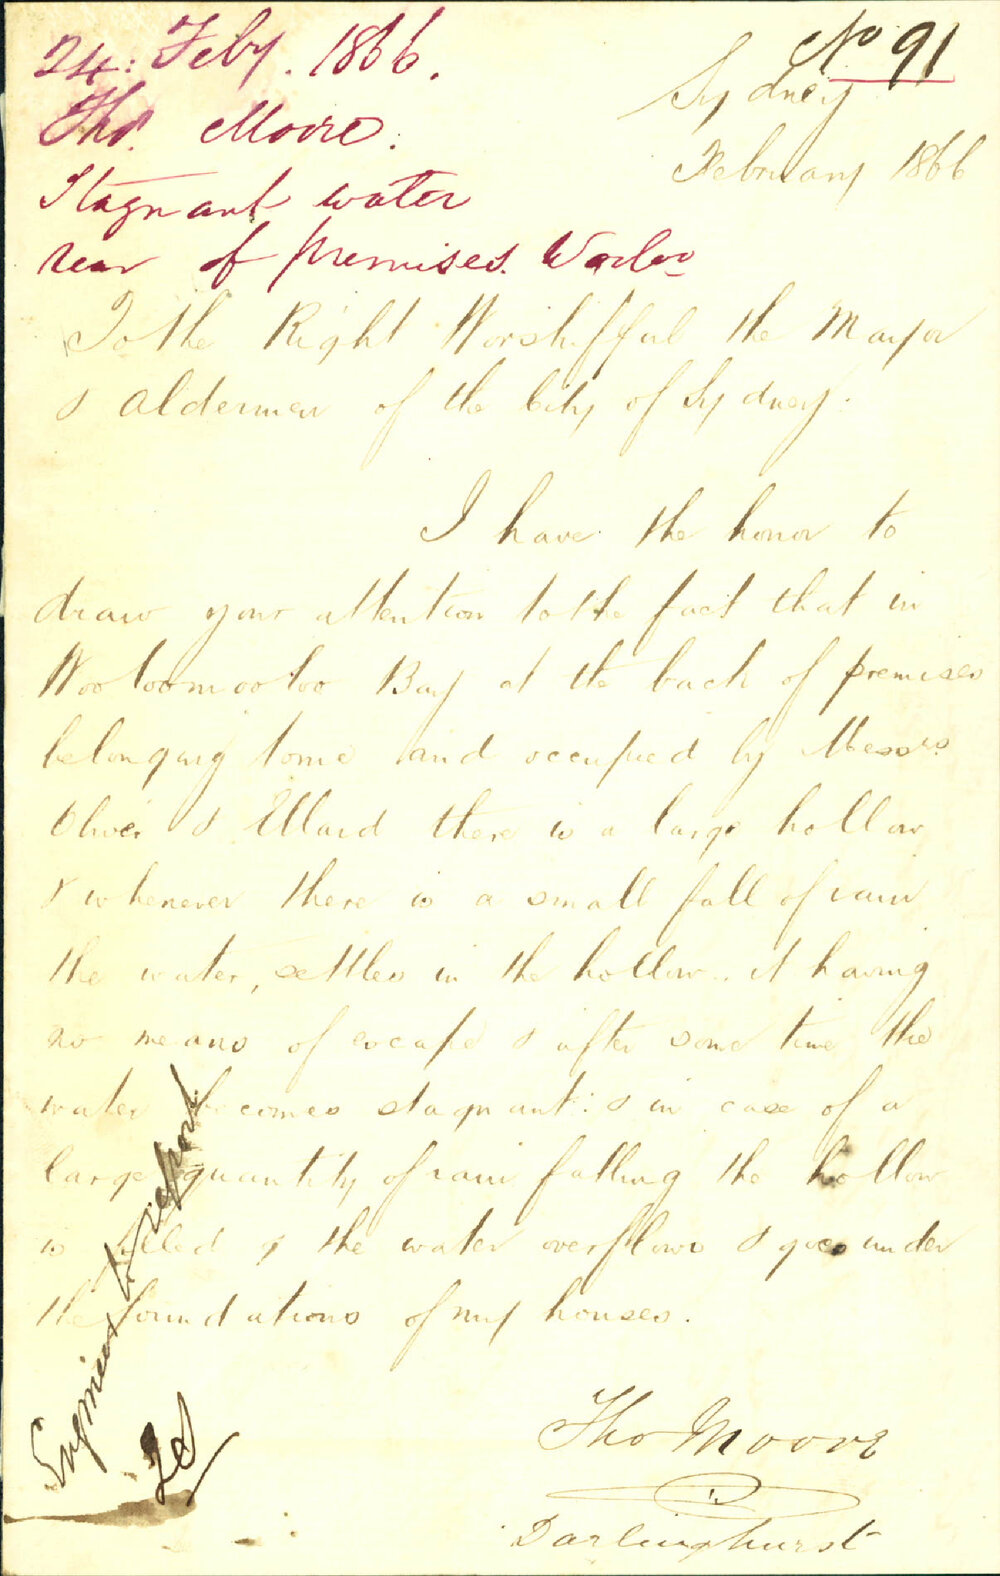 24: Feby. 1866.
No 91
Thos. Moore.
Stagnant water
rear of premises. Wooloo
Sydney
February 1866
To the Right Worshipfful the Mayor
& Aldermen of the City of Sydney.
I have the honor to
draw your attention to the fact that in
Wooloomooloo Bay at the back of premises
belonging to me and occupied by Messrs
Oliver & Ellard there is a large hollow
& whenever there is a small fall of rain
the water, settles in the hollow.. it having
no means of escape & after some time the
water becomes stagnant: & in case of a
large quantity of rain falling the hollow
is filled & the water overflows & goes under
the foundations of my houses.
Tho Moore
Darlinghurst
Engineer to report